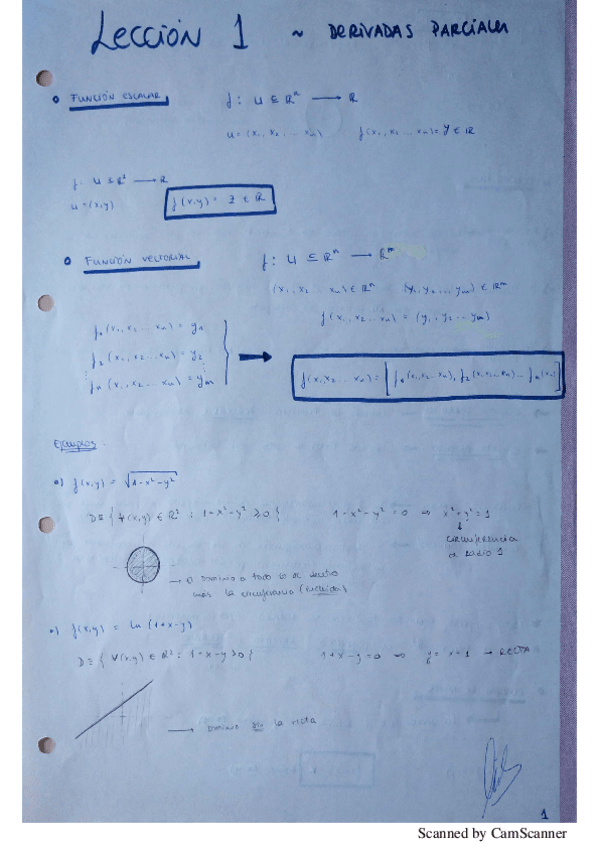 Lección 1 ~ DERIVADAS PARCIALES
FUNCIÓN ESCALAR f: U ⊆ ℝⁿ → ℝ
u = (x₁, x₂ ... xₙ) f(x₁, x₂ ... xₙ) = y ∈ ℝ
f: U ⊆ ℝ² → ℝ
u = (x,y) f(x,y) = z ∈ ℝ
FUNCIÓN VECTORIAL f: U ⊆ ℝⁿ → ℝᵐ
(x₁, x₂ ... xₙ) ∈ ℝⁿ (y₁, y₂ ... yₘ) ∈ ℝᵐ
f(x₁, x₂ ... xₙ) = (y₁, y₂ ... yₘ)
f₁(x₁, x₂ ... xₙ) = y₁
f₂(x₁, x₂ ... xₙ) = y₂
fₘ(x₁, x₂ ... xₙ) = yₘ
f(x₁, x₂ ... xₙ) = [f₁(x₁, x₂ ... xₙ), f₂(x₁, x₂ ... xₙ) ...
Ejemplos:
f(x,y) = √1-x²-y²
D ≡ { ∀(x,y) ∈ ℝ² : 1-x²-y² ≥ 0 } 1-x²-y² = 0 ⇒ x²+y² = 1
circunferencia
radio 1
dominio todo lo de dentro
más la circunferencia (incluida)
f(x,y) = ln(1+x-y)
D ≡ { ∀(x,y) ∈ ℝ² : 1+x-y > 0 } 1+x-y = 0 → RECTA
→ Dominio sin la recta
1
Scanned by CamScanner